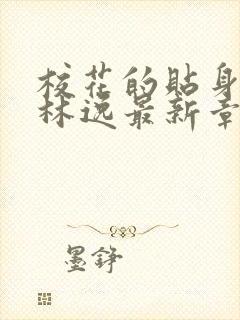 校花的贴身
林逸最新章
墨铮